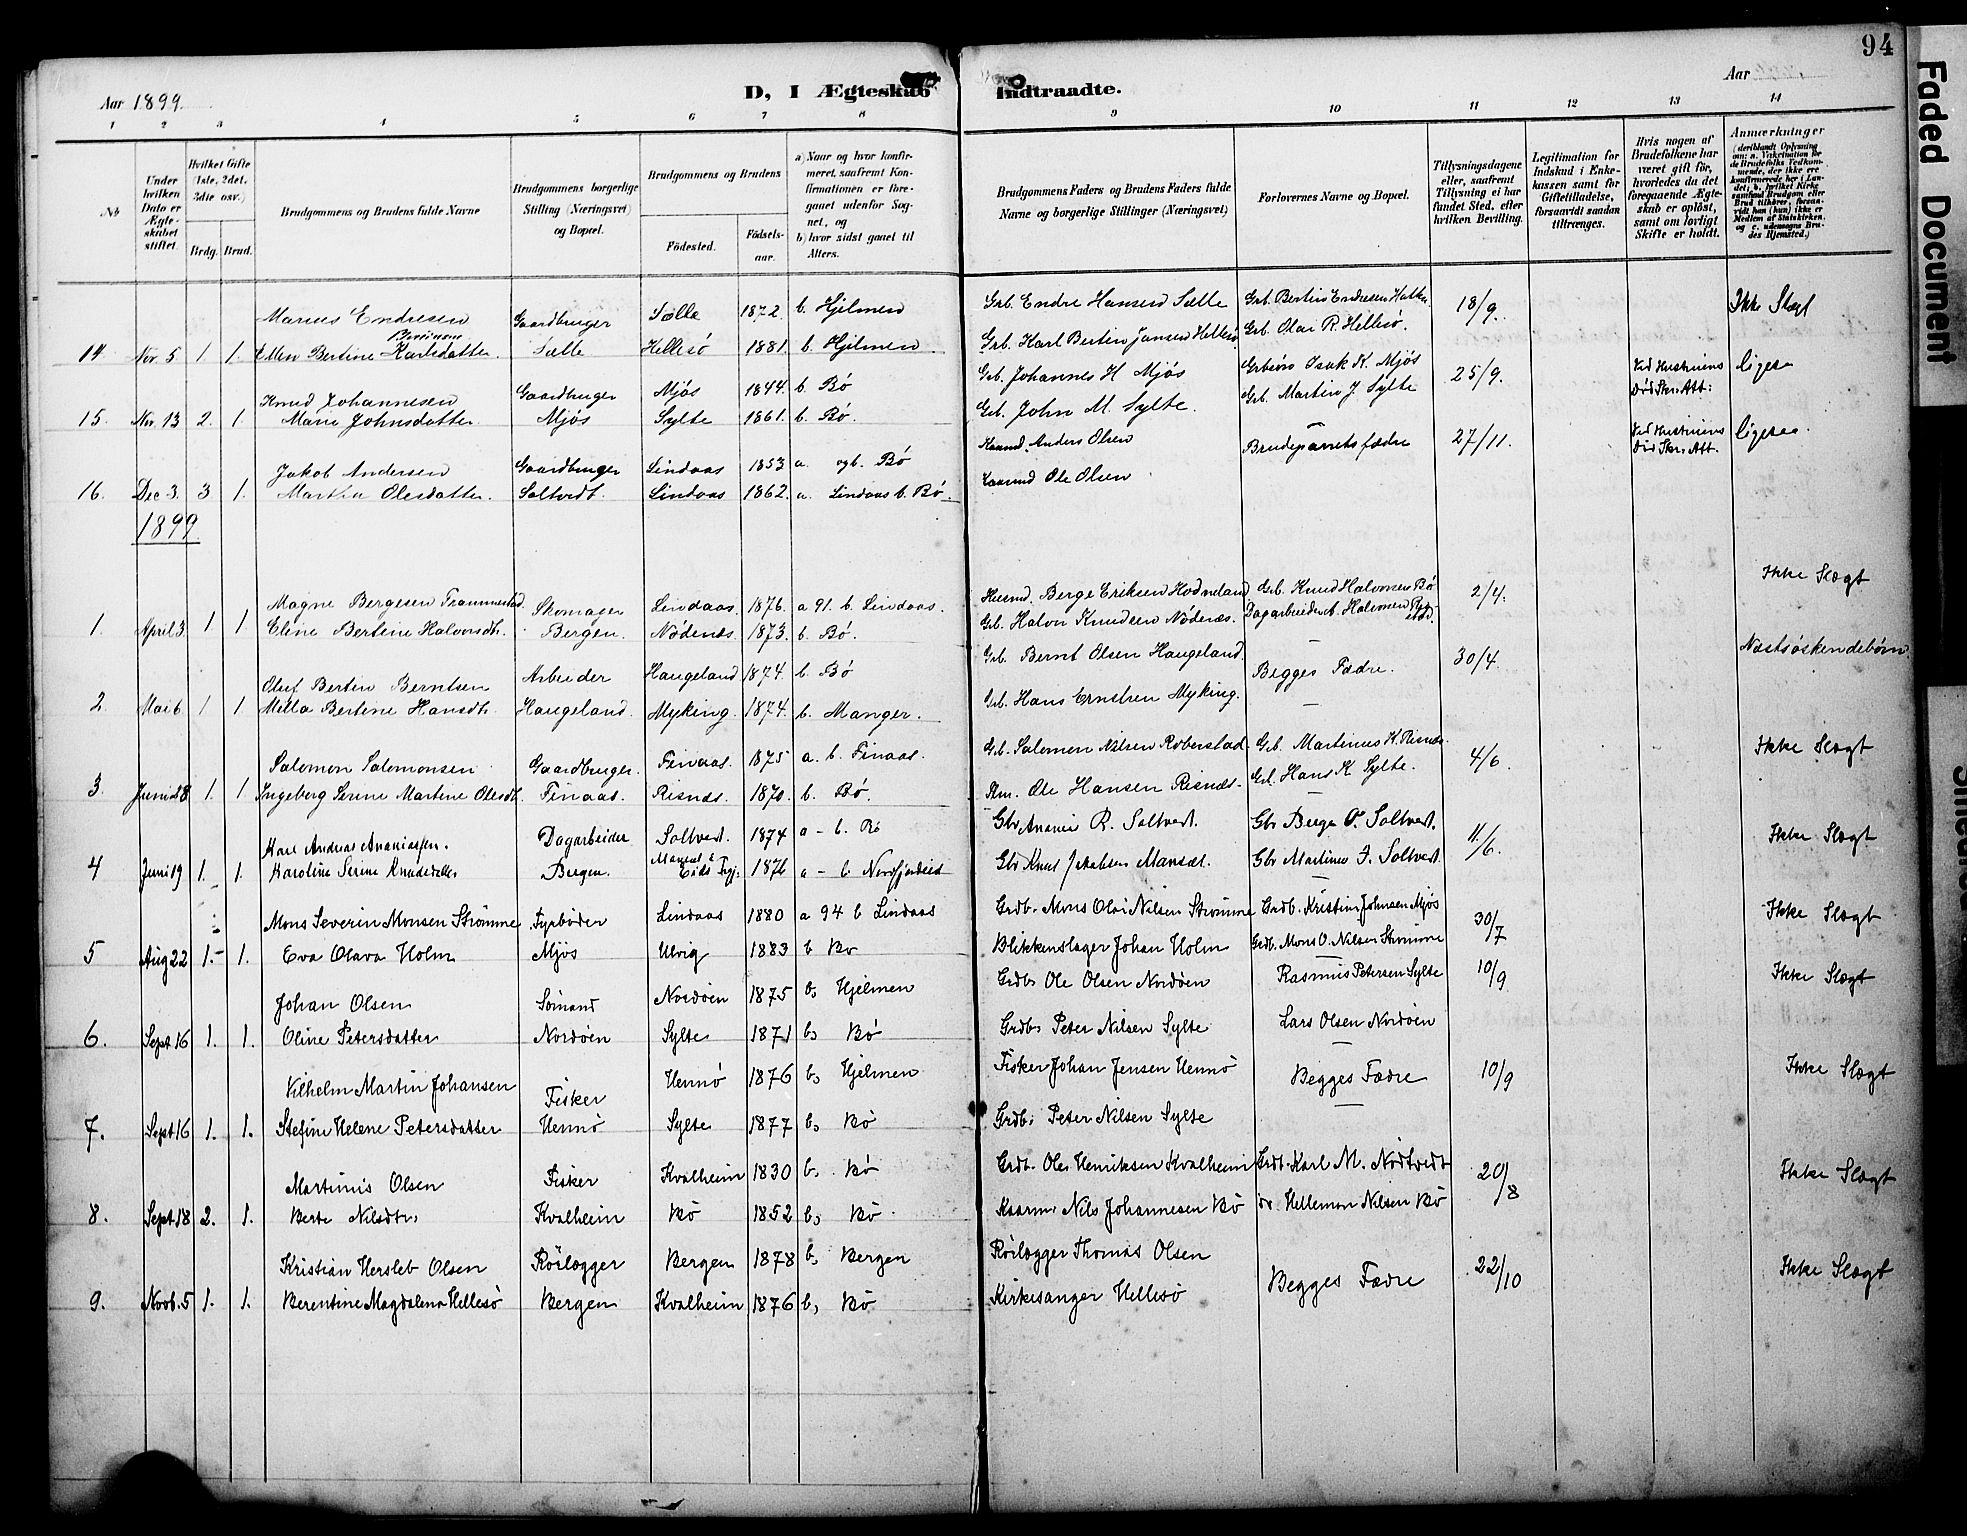 94
Faded Document
Aar 1899.
D, I Ægteskab
Indtraadte.
Aar
1 2 3 4 5 6 7 8 9 10 11 12 13 14
No
Under hvilken Dato er Ægteskabet stiftet.
Hvilket Gifte (1ste, 2det, 3die osv.)
Brdg. Brud.
Brudgommens og Brudens fulde Navne
Brudgommens borgerlige Stilling (Næringsvei) og Bopæl.
Brudgommens og Brudens
Fødested.
Fødselsaar.
a) Naar og hvor konfirmeret, saafremt Konfirmationen er foregaaet udenfor Sognet, og
b) hvor sidst gaaet til Alters.
Brudgommens Faders og Brudens Faders fulde Navne og borgerlige Stillinger (Næringsvei)
Forlovernes Navne og Bopæl.
Tillysningsdagene eller, saafremt Tillysning ei har fundet Sted, efter hvilken Bevilling.
Legitimation for Indskud i Enkekassen samt for Giftetilladelse, forsaavidt saadan tiltrænges.
Hvis nogen af Brudefolkene har været gift før, hvorledes da det foregaaende Ægteskab er opløst, samt om lovligt Skifte er holdt.
Anmærkninger
(deriblandt Oplysning om: a. Vakcination for de Brudefolks Vedkommende, der ikke ere konfirmerede her i Landet; b. hvilket Kirkesamfund Brudgom eller Brud tilhører, forsaavidt han (hun) ikke er Medlem af Statskirken, og c. udensogns Brudes Hjemsted.)
Marius Endresen Gaardbruger Sælle 1872. b. Hjelmen Grb. Endre Hansen Sælle Grb. Bertin Endresen 18/9. Ikke Slægt
14 Nov. 5 1 1. Ellen Bertine Karlsdatter. Sælle Hellesö 1881. b. Hjelmen. Grb. Karl Bertin Jansen Hellesö Grb. Olai R. Hellesö.
Knud Johannesen Gaardbruger Mjös 1844. b. Bö Grb. Johannes H Mjös Isak K. Mjös 25/9. Ved Hustruens Död Skr. Att: ligesaa
15. Nov. 13 2. 1. Marie Johnsdatter. Mjøs Sylte 1861. b. Bö. Grb. John M. Sylte. Grb. Martin J. Sylte
Jakob Andersen Gaardbruger Lindaas 1853 a. og b. Bö Anders Olsen Brudeparrets fædre 27/11. Ved Hustruens Död Skr. Att. ligesaa.
16. Dec 3. 3 1. Martha Olesdatter. Soltvedt. Lindaas 1862. a. Lindaas b. Bö Ole Olsen
1899.
Magne Bergesen Skomager Lindaas. 1876. a 91. b. Lindaas. Husmd. Berge Eriksen Hodneland Grb. Knud Halvorsen Bö 2/4. Ikke Slægt
1. April 3 1 1 Eline Bertine Halvorsdtr. Bergen. Nødenæs. 1873. b. Bö. Grb. Halvor Knudsen Nödenæs. Dagarbeider A. Halvorsen
Oluf Bertin Berntsen Arbeider Haugeland 1874. b. Bö Grb. Bernt Olsen Haugeland. Begges Fædre. 30/4. Næstsöskendebörn.
2 Mai 6 1 1 Milla Bertine Hansdtr. Haugeland. Myking. 1874. b. Manger. Grb. Hans Ernstsen Myking.
Salomon Salomonsen Gaardbruger. Finaas. 1875 a. b. Finaas. Grb. Salomon Nilsen Roberstad. Grb. Martinus H. Risnæs 4/6. Ikke Slægt
3. Juni 18 1. 1 Ingeberg Serine Martine Olesdtr. Finaas. Risnæs. 1870. b. Bö. Ole Hansen Risnæs. Grb. Hans K Sylte.
Karl Andreas Ananiassen. Dagarbeider Soltvedt. 1874 a - b. Bö Gbr Ananias R. Soltvedt. Gbr Berge O. Soltvedt. 11/6. Ikke Slægt
4 Juni 19 1. 1. Karoline Serine Knudsdatter. Bergen. 1876 a - b Nordfjordeid Gbr Knut Jakobsen Mansæt. Gbr Martinus J. Soltvedt
Mons Severin Monsen Strömme Fyrböder Lindaas 1880 a 94 b Lindaas Grdb. Mons Olai Nilsen Strömme Grdb. Kristin Johnsen Mjös 30/7 Ikke Slægt
5 Aug 22 1.- 1. Eva Olava Holm Mjös Ulvig 1883 b Bö Blikkenslager Johan Holm Grdb. Mons O. Nilsen Strömme
Johan Olsen Sömand Nordöen 1875 b, Hjelmen Grdb. Ole Olsen Nordöen Rasmus Petersen Sylte 10/9 Ikke Slægt
6. Sept 16 1. 1. Oline Petersdatter Nordöen Sylte 1871 b, Bö Grdb: Peter Nilsen Sylte Lars Olsen Nordöen
Vilhelm Martin Johansen Fisker Hennö 1876 b, Hjelmen Fisker Johan Jensen Hennö Begges Fædre 10/9 Ikke Slægt
7. Sept 16 1. 1. Stefine Helene Petersdatter Hennö Sylte 1877 b, Bö Grdb: Peter Nilsen Sylte
Martinus Olsen Fisker Kvalheim 1830 b, Bö Grdb. Ole Henriksen Kvalheim Grdb. Karl M. Nödtvedt 20/8 Ikke Slægt
8. Sept 18 2. 1. Berte Nilsdtr. Kvalheim Bö 1852 b, Bö Kaarm. Nils Johannesen Bö Hellemon Nilsen Bö
Kristian Hersleb Olsen Rörlægger Bergen 1878 b, Bergen Rörlægger Thomas Olsen Begges Fædre 22/10 Ikke Slægt
9. Novb. 5 1. 1. Berentine Magdalena Hellesö Bergen Kvalheim 1876 b, Bö Kirkesanger Hellesö